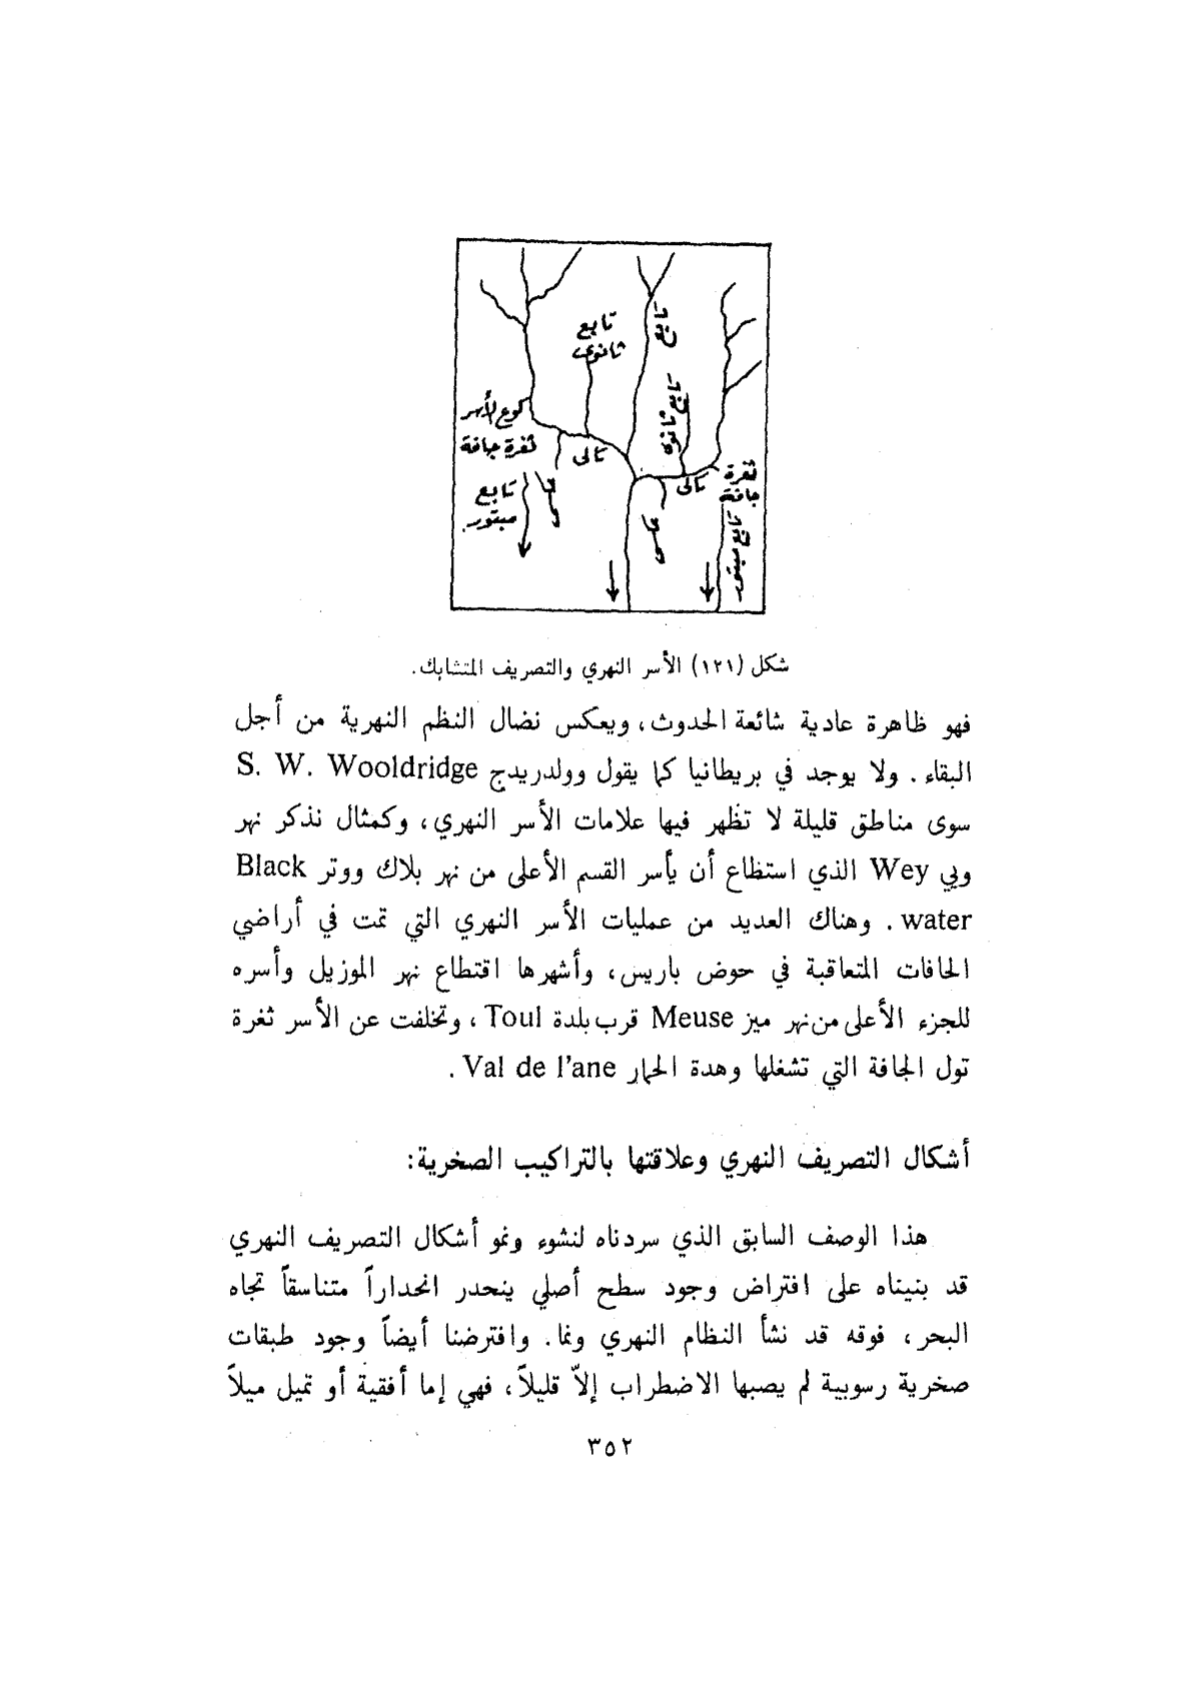 تابع
ثانوى
تابع
تابع
ثانوى
كوع الأسر
ثغرة جافة
تالى
تالى
ثغرة
جافة
تابع
مبتور
تابع
شكل (١٢١) الأسر النهري والتصريف المتشابك.
فهو ظاهرة عادية شائعة الحدوث، ويعكس نضال النظم النهرية من أجل
البقاء. ولا يوجد في بريطانيا كما يقول وولدريدج S. W. Wooldridge
سوى مناطق قليلة لا تظهر فيها علامات الأسر النهري، وكمثال نذكر نهر
ويي Wey الذي استظاع أن يأسر القسم الأعلى من نهر بلاك ووتر Black
water. وهناك العديد من عمليات الأسر النهري التي تمت في أراضي
الحافات المتعاقبة في حوض باريس، وأشهرها اقتطاع نهر الموزيل وأسره
للجزء الأعلى من نهر ميز Meuse قرب بلدة Toul، وتخلفت عن الأسر ثغرة
تول الجافة التي تشغلها وهدة الحمار Val de l'ane.
أشكال التصريف النهري وعلاقتها بالتراكيب الصخرية:
هذا الوصف السابق الذي سردناه لنشوء ونمو أشكال التصريف النهري
قد بنيناه على افتراض وجود سطح أصلي ينحدر انحداراً متناسقاً تجاه
البحر، فوقه قد نشأ النظام النهري ونما. وافترضنا أيضاً وجود طبقات
صخرية رسوبية لم يصبها الاضطراب إلاّ قليلاً، فهي إما أفقية أو تميل ميلاً
٣٥٢